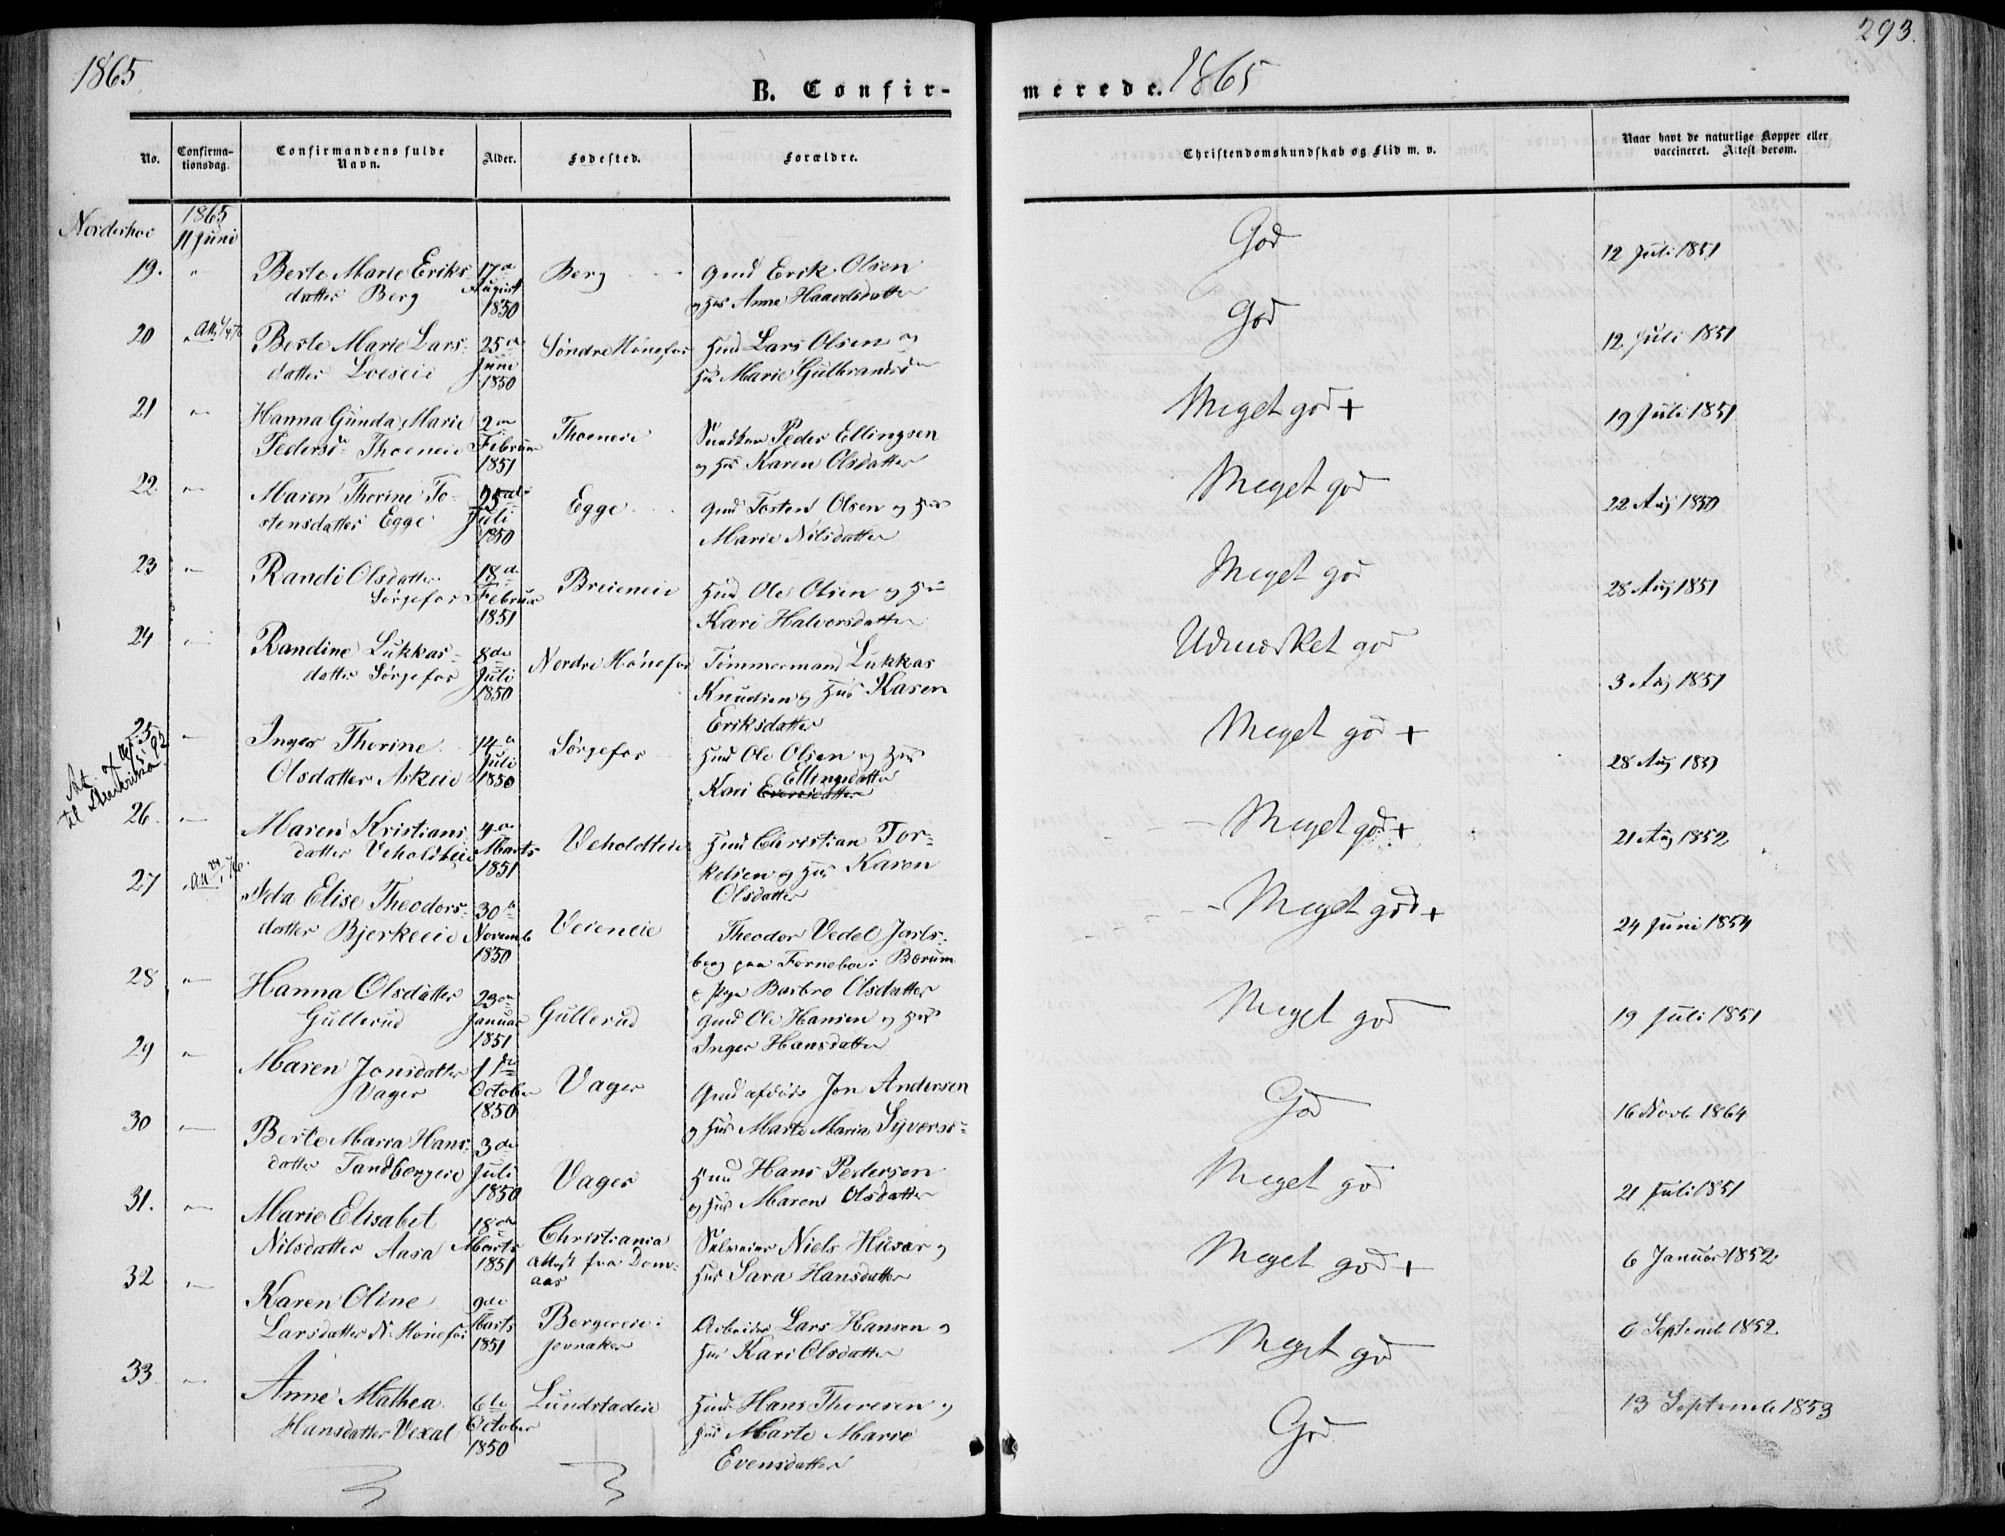 1865
B. Confir-
merede. 1865
293.
No.
Confirma-
tionsdag.
Confirmandens fulde
Navn.
Alder.
Fødested.
Forældre.
Christendomskundskab og Flid m. v.
Naar havt de naturlige Kopper eller
vaccineret. Attest derom.
Norderhov
1865
11 Juni
19. " Berte Marie Eriks- 17de Berg Gmd Erik Olsen God 12 Juli 1851
datter Berg August og Hus Anne Haavelsdatter
1850
20 Berte Marie Lars- 25de Søndre Hønefos Hmd Lars Olsen og God 12 Juli 1851
datter Loeseie Juni Hus Marie Gulbrandsd
1850
21 " Hanna Gunda Marie 2den Thoeneie Snedker Peder Ellingsen Meget god + 19 Juli 1851
Pedersd Thoeneie Februar og Hus Karen Olsdatter
1851
22 " Maren Thorine To- 25de Egge Gmd Tosten Olsen og Hus Meget god 22 Aug 1850
stensdatter Egge Juli Marie Nilsdatter
1850
23 " Randi Olsdatter 18de Breieneie Hmd Ole Olsen og Hus Meget god 28 Aug 1851
Sørgefos Februar Kari Halvorsdatter
1851
24 " Randine Lukkas- 8de Nordre Hønefos Tømmermand Lukkas Udmærket god 3 Aug 1851
datter Sørgefos Juli Knudsen og Hus Karen
1850 Eriksdatter
25 " Inger Thorine 14de Sørgefos Hmd Ole Olsen og Hus Meget god + 28 Aug 1851
Olsdatter Askeie Juli Kari Ellingsdatter
1850
26. " Maren Kristians 4de Veholdteie Hmd Christian Tor- Meget god + 21 Aug 1852
datter Veholdteie Marts kelsen og Hus Karen
1851 Olsdatter
27 Ida Elise Theodors- 30te Veieneie Theodor Vedel Jarls- Meget god + 24 Juni 1854
datter Bjerkeeie Novemb berg paa Forneboe i Bærum
1850 Pige Barbro Olsdatter
28 " Hanna Olsdatter 23de Gullerud Gmd Ole Hansen og Hus Meget god 19 Juli 1851
Gullerud Januar Inger Hansdatter
1851
29 " Maren Jonsdatter 11te Vager Gmd afdøde Jon Andersen God 16 Novb 1864
Vager October og Hus Marte Maria Syversd
1850
30 " Berte Maria Hans- 3de Vager Hmd Hans Pedersen Meget god 21 Juli 1851
datter Tandbergeie Juli og Hus Maren Olsdatter
1850
31. " Marie Elisabet 18de Christiania Niels Husar og Meget god + 6 Januar 1852
Nilsdatter Aasa Marts attest fra Dom- Hus Sara Hansdatter
1851 aas
32 " Karen Oline 9de Bergereie i Arbeider Lars Hansen og Meget god 6 Septemb 1852.
Larsdatter N. Hønefos Marts Jevnaker Hus Kari Olsdatter
1851
33 " Anne Mathea 6te Lundstadeie Hmd Hans Thoresen og God 13 Septemb 1853
Hansdatter Vexal October Hus Marte Marie
1850 Evensdatter